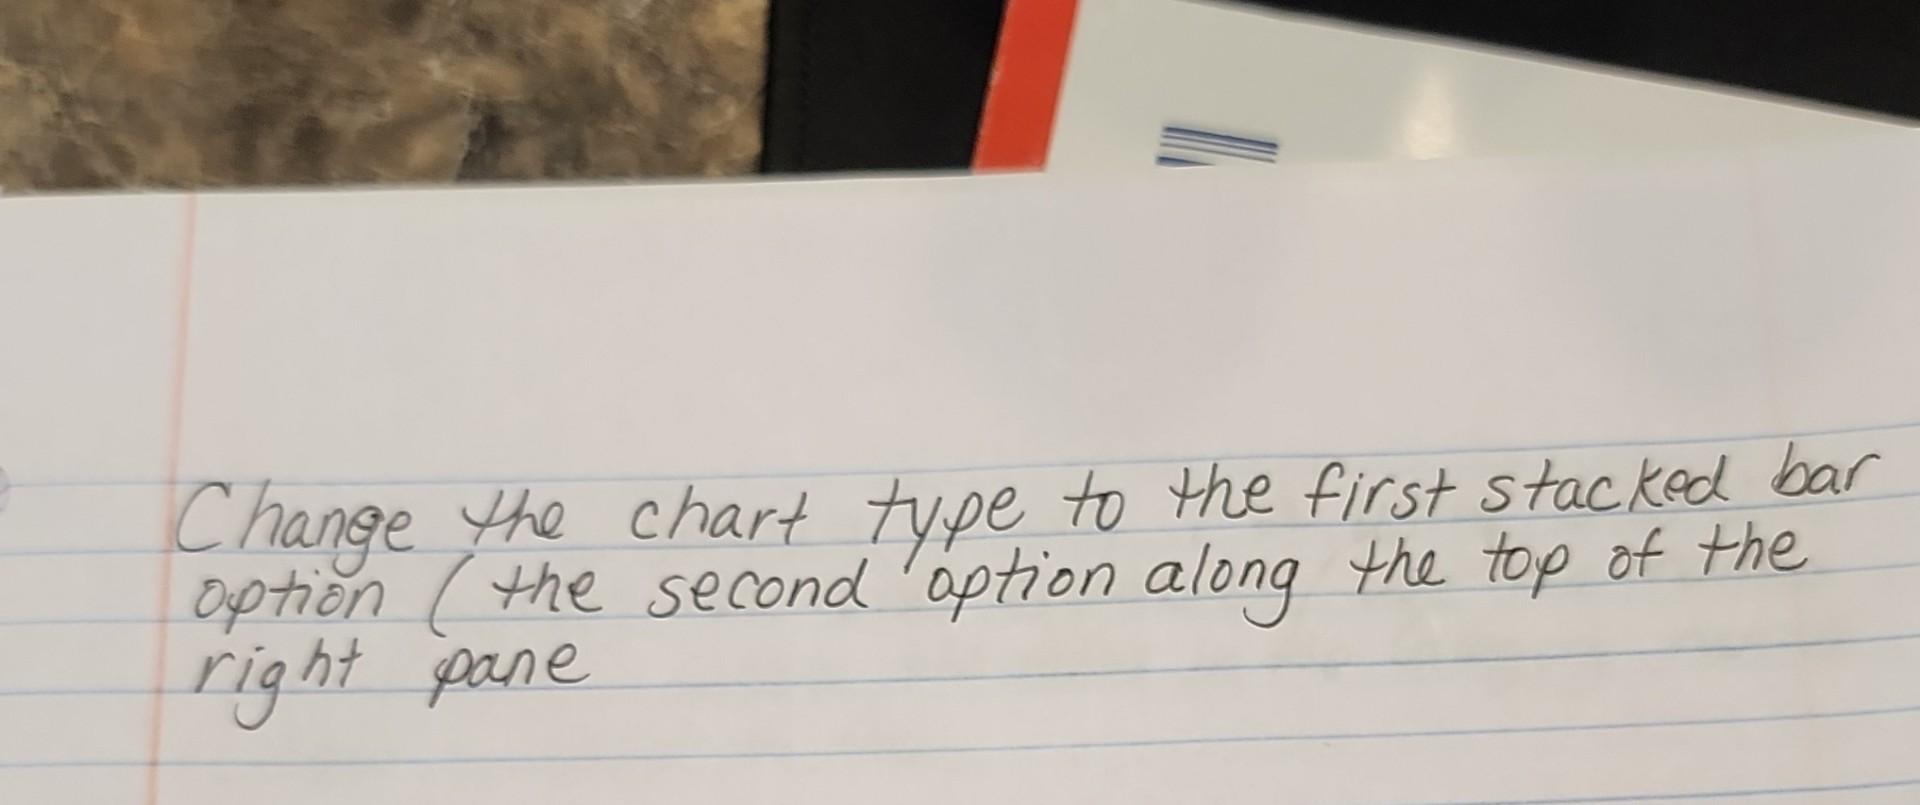 Change the chart type to the first stacked bar
option (the second option along the top of the
right pane